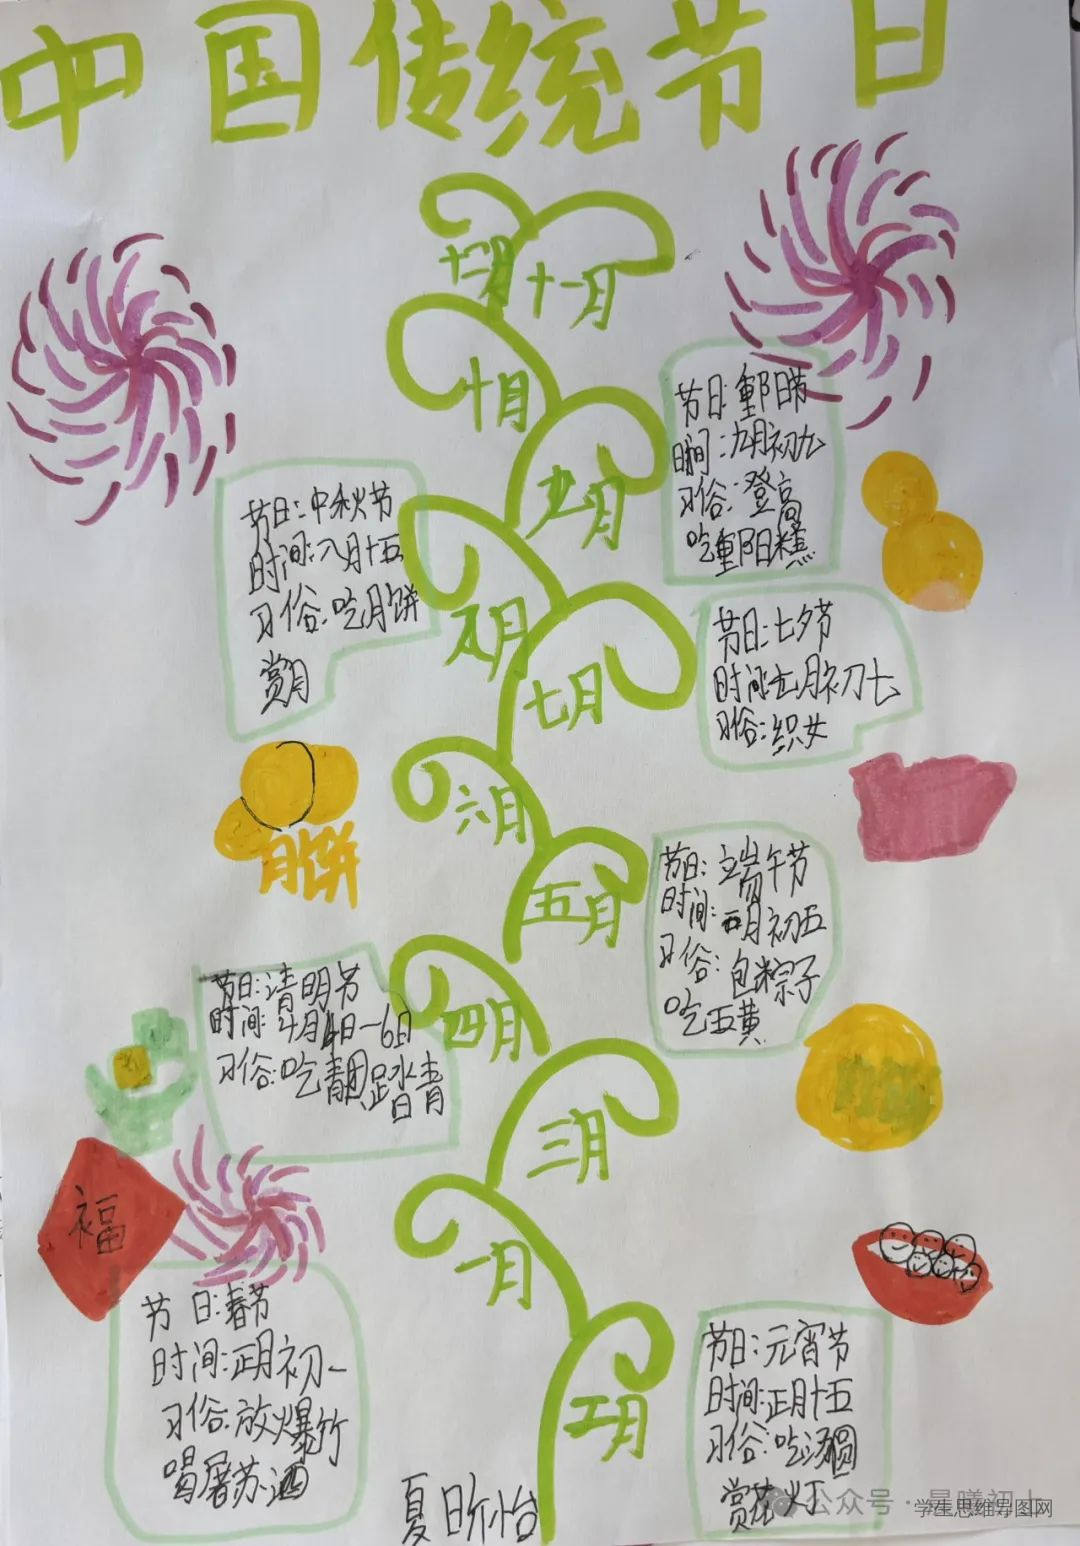 中国传统节日
十二月
十一月
十月
九月
节日:重阳节
时间:九月初九
习俗:登高
吃重阳糕
节日:中秋节
时间:八月十五
习俗:吃月饼
赏月
八月
七月
节日:七夕节
时间:七月初七
习俗:织女
月饼
六月
五月
节日:端午节
时间:五月初五
习俗:包粽子
吃五黄
节日:清明节
时间:4月4日-6日
习俗:吃青团踏青
四月
三月
福
一月
节日:春节
时间:正月初一
习俗:放爆竹
喝屠苏酒
二月
节日:元宵节
时间:正月十五
习俗:吃汤圆
赏花灯
公众号·晨曦初上
学生思维导图网